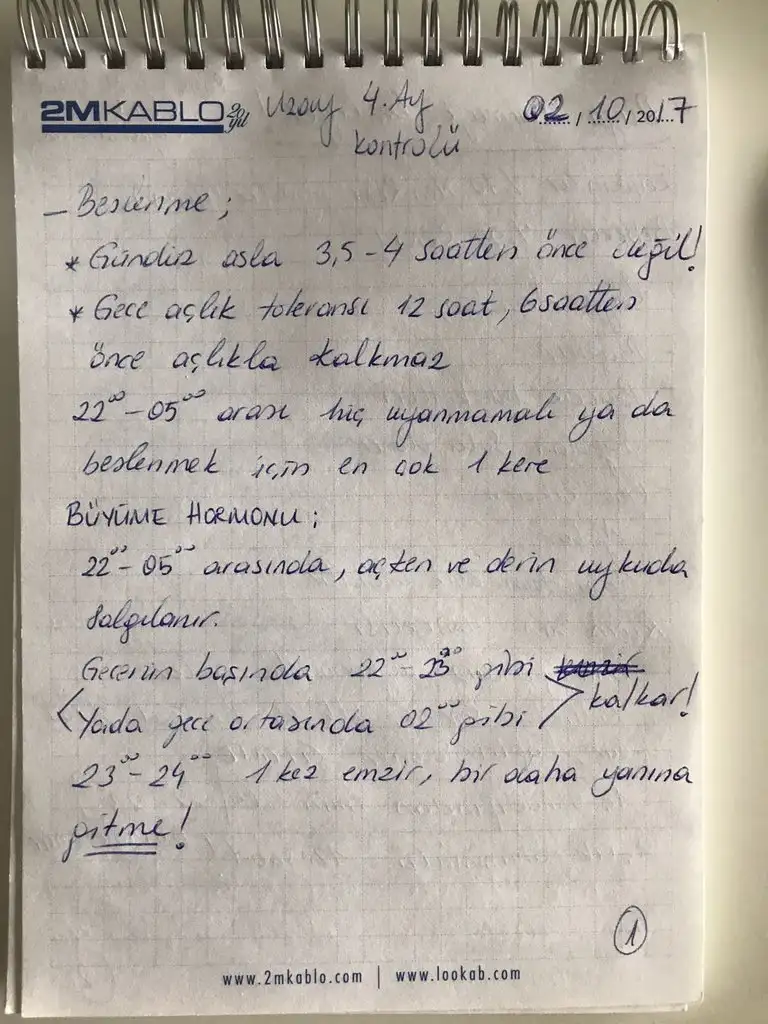 2MKABLO 20.yıl Uzay 4.Ay 02/10/2017
kontrolü
- Beslenme ;
* Gündüz asla 3,5-4 saatten önce değil!
* Gece açlık toleransı 12 saat, 6 saatten
önce açlıkla kalkmaz
22⁰⁰-05⁰⁰ arası hiç uyanmamalı ya da
beslenmek için en çok 1 kere
BÜYÜME HORMONU ;
22⁰⁰-05⁰⁰ arasında, açken ve derin uykuda
salgılanır.
Gecenin başında 22⁰⁰-23³⁰ gibi
Yada gece ortasında 02⁰⁰ gibi kalkar!
23⁰⁰-24⁰⁰ 1 kez emzir, bir daha yanına
gitme!
1
www.2mkablo.com | www.lookab.com